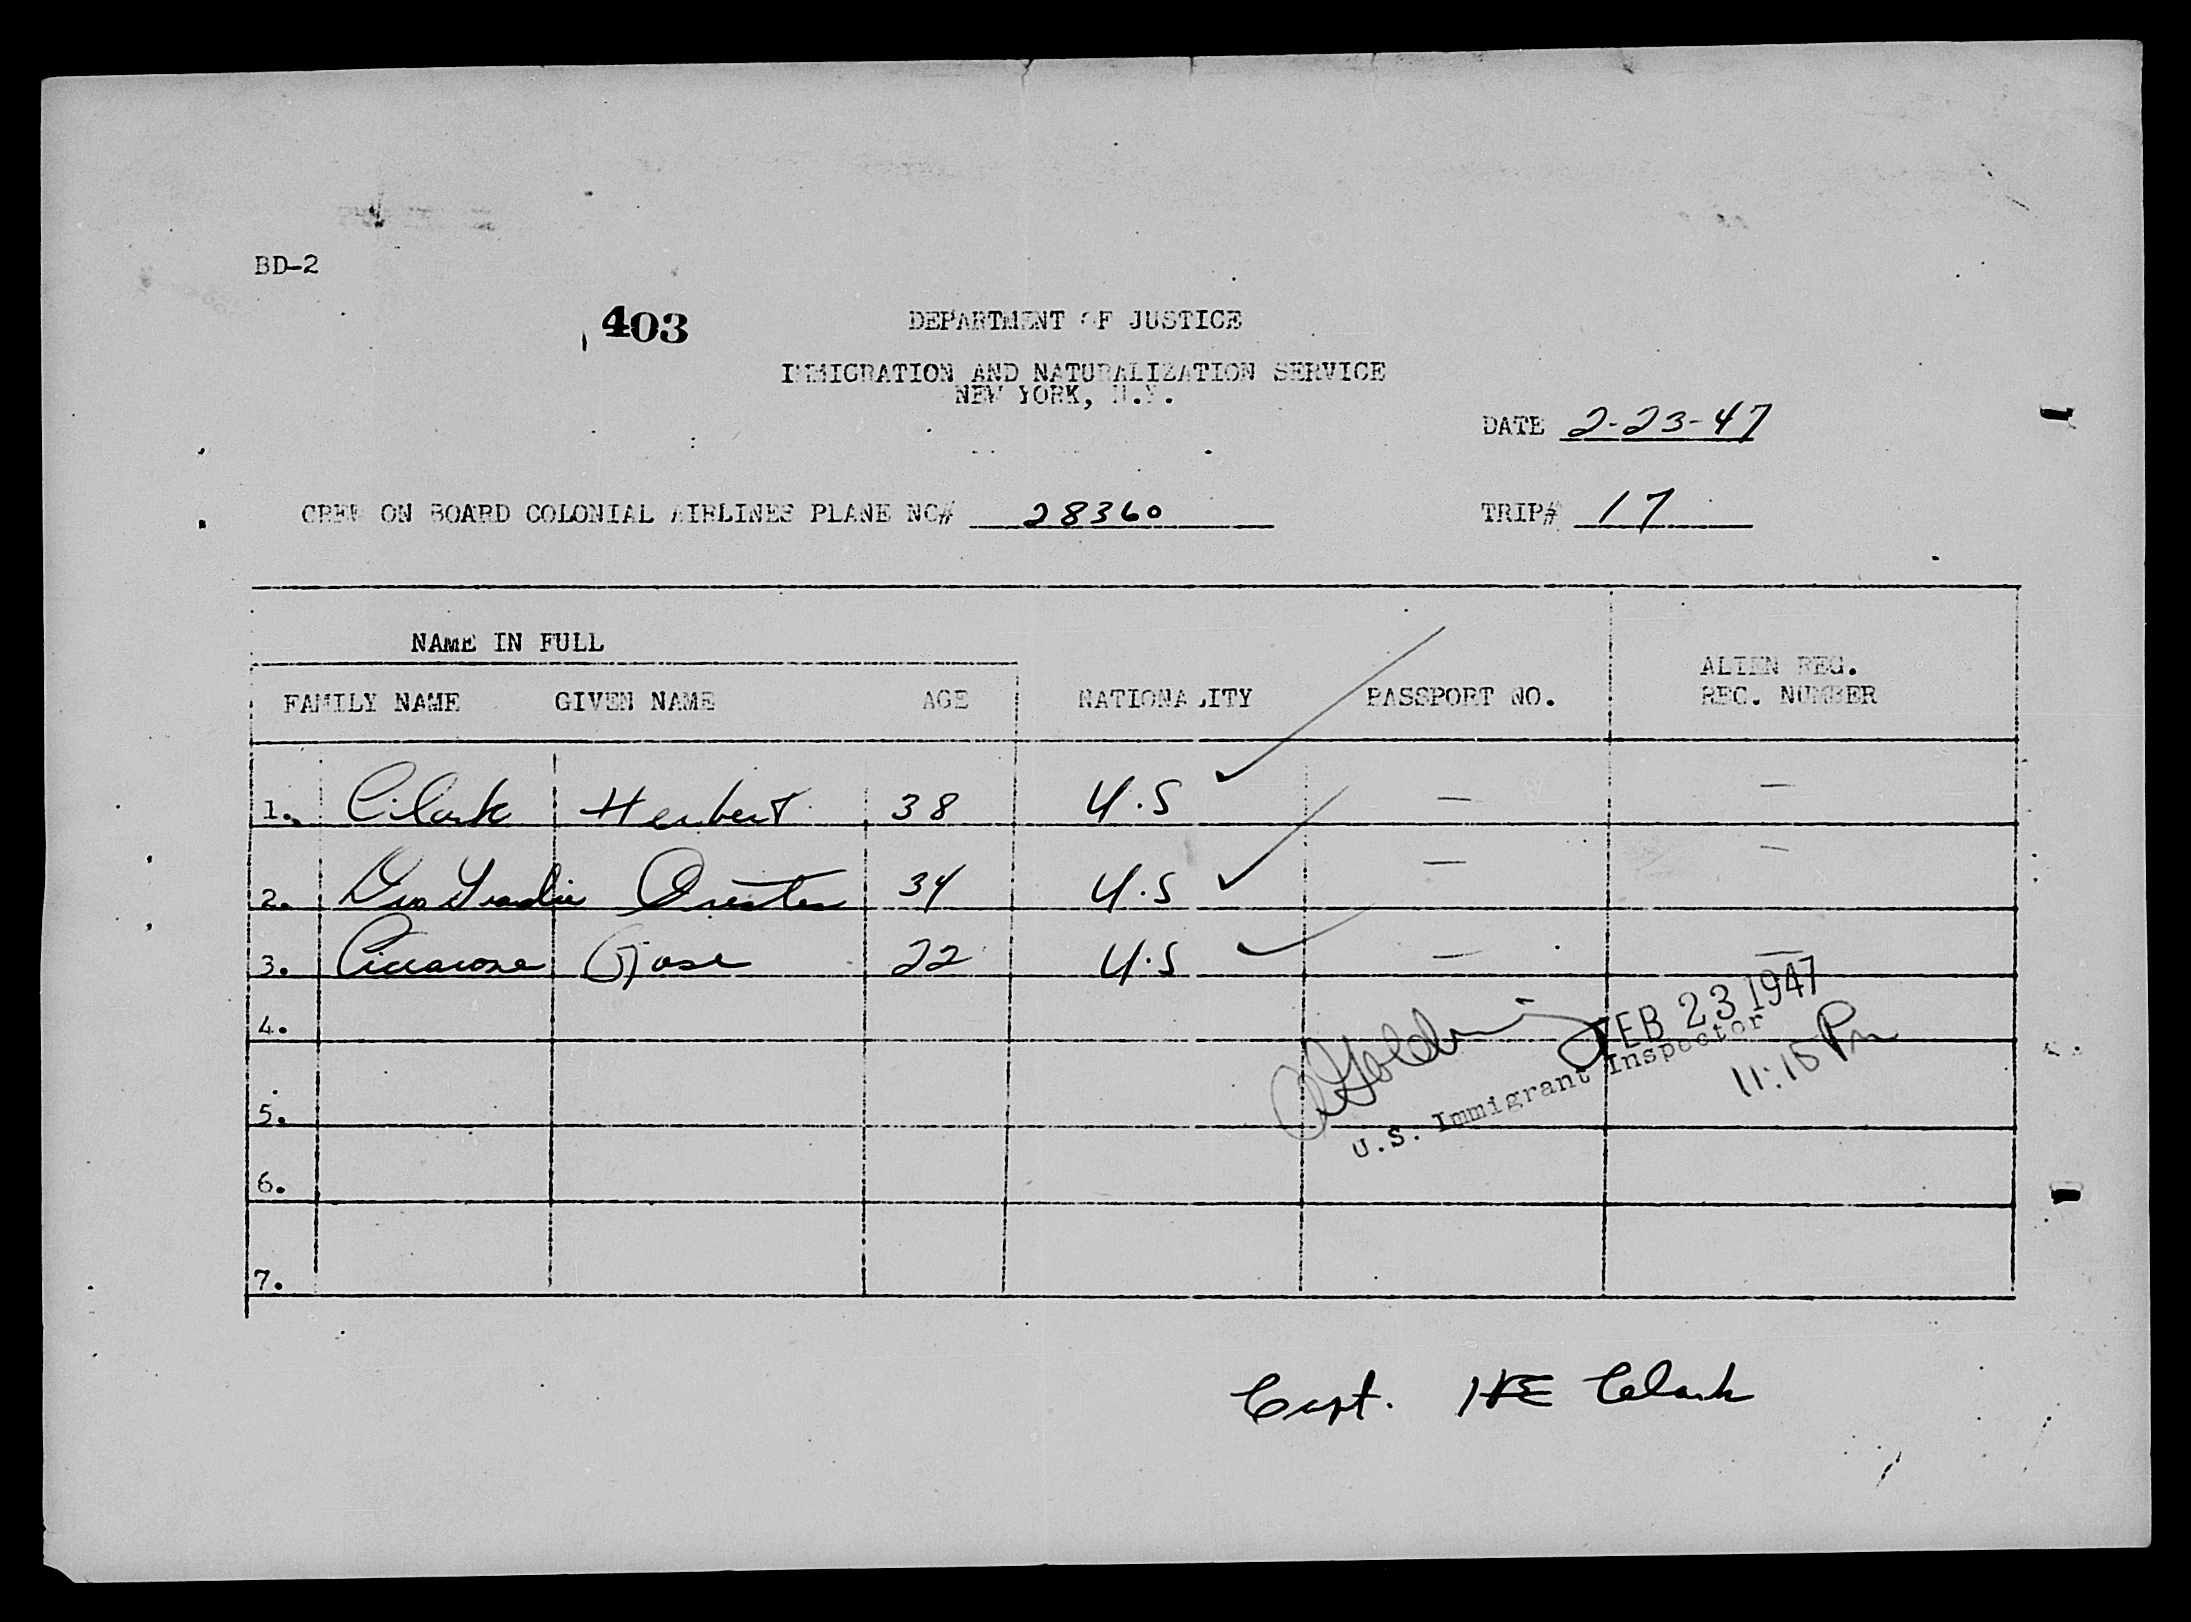 BD-2
403
DEPARTMENT OF JUSTICE
IMMIGRATION AND NATURALIZATION SERVICE
NEW YORK, N.Y.
DATE 2-23-47
CREW ON BOARD COLONIAL AIRLINES PLANE NO# 28360 TRIP# 17
NAME IN FULL
FAMILY NAME GIVEN NAME AGE NATIONALITY PASSPORT NO. ALIEN REG. REC. NUMBER
1. Clark Herbert 38 U.S ✓ — —
2. Orestes 34 U.S ✓ — —
3. Ciccarone Rose 22 U.S ✓ — —
4.
FEB 23 1947
U.S. Immigrant Inspector
11:15 Pm
5.
6.
7.
Capt. HE Clark